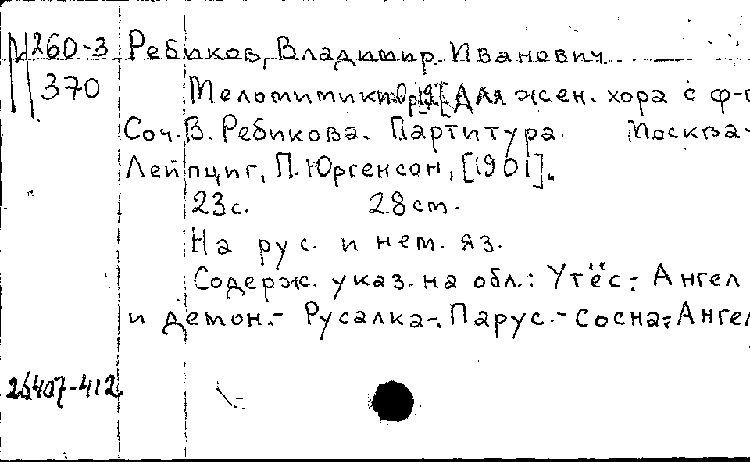 М260-3 Ребиков, Владимир Иванович
370 Меломимики [Для жен. хора с ф-п
Соч. В. Ребикова. Партитура Москва-
Лейпциг, П. Юргенсон, [1901].
23с. 28cm.
На рус. и нем. яз.
Содерж. указ. на обл.: Утёс; Ангел
и демон.- Русалка-. Парус.- Сосна; Ангел
26407-412